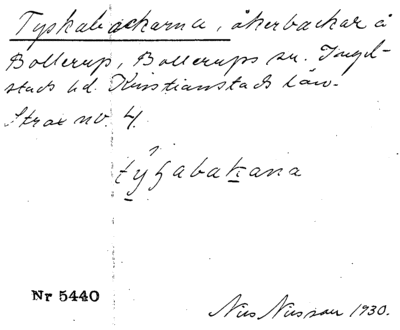 Tyskabackarna, åkerbackar å
Bollerup, Bollerups sn. Ingel-
stads hd. Kristianstads län.
Strax nv. 4.
Nr 5440
Nils Nilsson 1930.